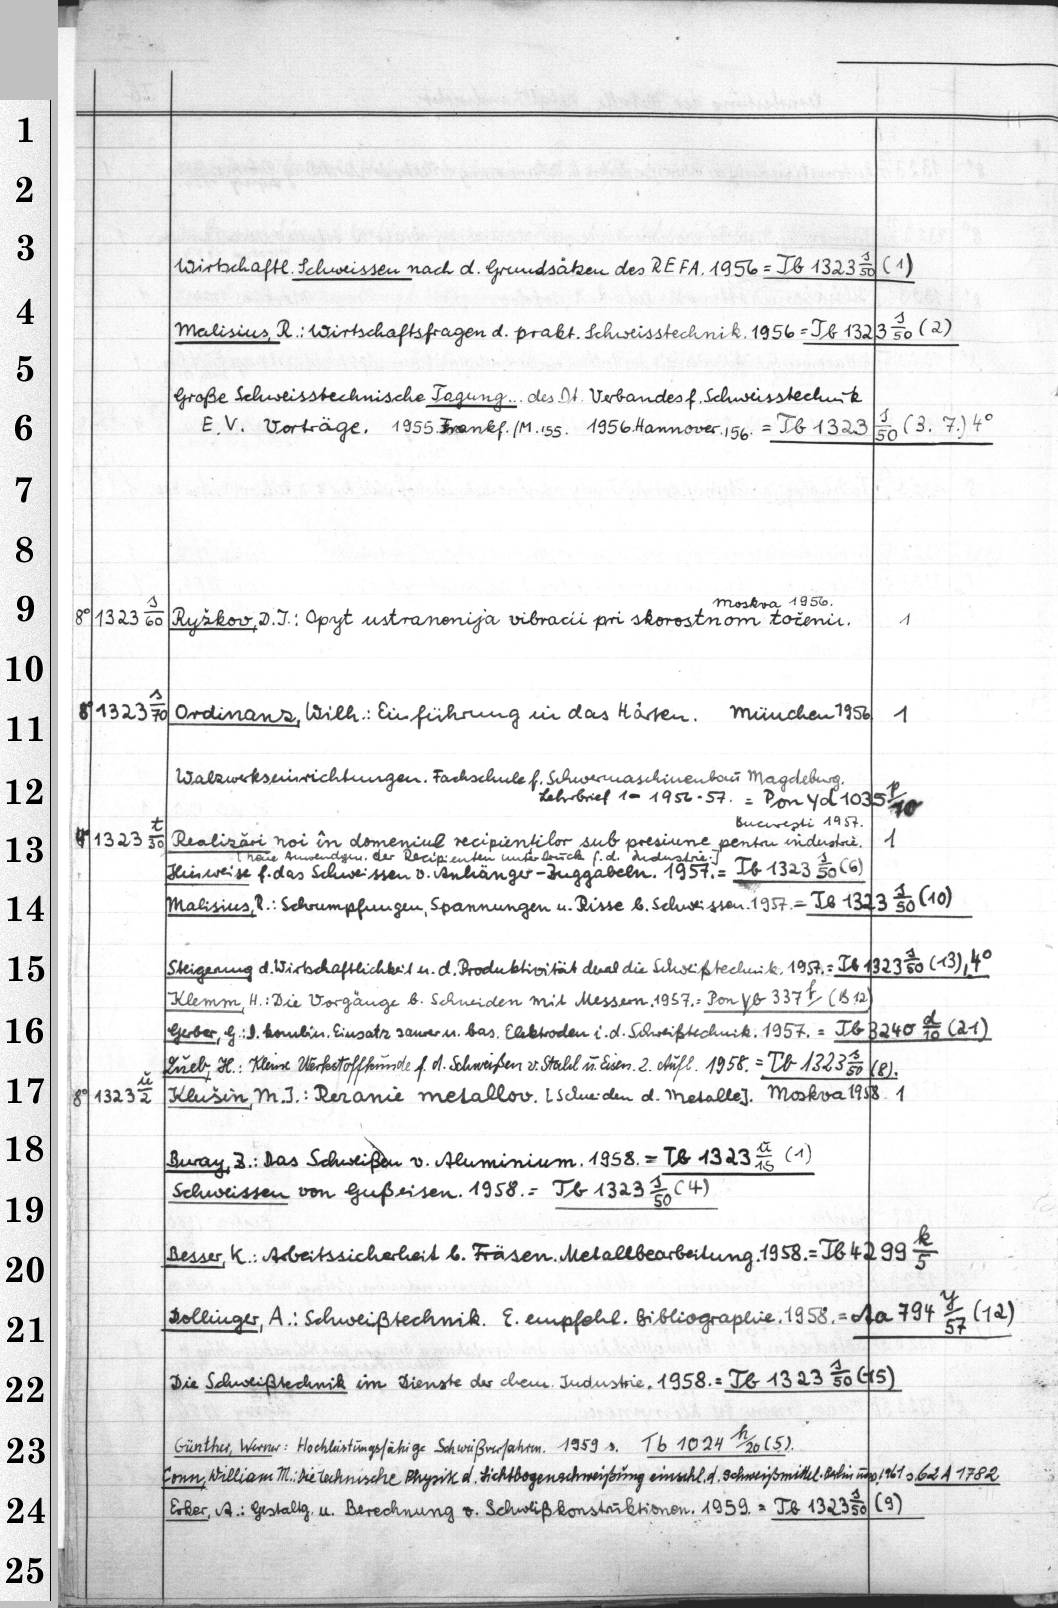 1
2
3
Wirtschaftl. Schweissen nach d. Grundsätzen des REFA. 1956 = Tb 1323 s/50 (1)
4
Malisius, R.: Wirtschaftsfragen d. prakt. Schweisstechnik. 1956 = Tb 1323 s/50 (2)
5
Große Schweisstechnische Tagung... des Dt. Verbandes f. Schweisstechnik
6
E.V. Vorträge. 1955. Frankf./M. 155. 1956. Hannover. 156. = Tb 1323 s/50 (3. 7.) 4°
7
8
Moskva 1956.
9
8° 1323 s/60 Ryžkov, D.I.: Opyt ustranenija vibracii pri skorostnom točenii. 1
10
8° 1323 s/70 Ordinanz, Wilh.: Einführung in das Härten. München 1956 1
11
Walzwerkseinrichtungen. Fachschule f. Schwermaschinenbau Magdeburg.
12
Lehrbrief 1- 1956-57. = Pon Yd 1035 p/10
Bucureşti 1957.
4° 1323 t/50 Realizări noi în domeniul recipientilor sub presiune pentru industrie. 1
13
[neue Anwendgn. der Recipienten unter Druck f. d. Industrie.]
Hinweise f. das Schweissen v. Anhänger-Zuggabeln. 1957. = Tb 1323 s/50 (6)
14
Malisius, R.: Schrumpfungen, Spannungen u. Risse b. Schweissen. 1957. = Tb 1323 s/50 (10)
15
Steigerung d. Wirtschaftlichkeit u. d. Produktivität dch d. die Schweißtechnik. 1957. = Tb 1323 s/50 (13), 4°
Klemm, H.: Die Vorgänge b. Schneiden mit Messern. 1957. = Pon Yb 337 f/ (B 12)
16
Gerber, G.: D. kombin. Einsatz saurer u. bas. Elektroden i. d. Schweißtechnik. 1957. = Tb 3240 d/10 (21)
Lüeb, H.: Kleine Werkstoffkunde f. d. Schweißen v. Stahl u. Eisen. 2. Aufl. 1958. = Tb 1323 s/50 (8).
17
8° 1323 ü/2 Klušin, M.I.: Rezanie metallov. [Schneiden d. Metalle]. Moskva 1958 1
18
Buray, Z.: Das Schweißen v. Aluminium. 1958. = Tb 1323 ü/15 (1)
Schweissen von Gußeisen. 1958. = Tb 1323 s/50 (4)
19
Besser, K.: Arbeitssicherheit b. Fräsen. Metallbearbeitung. 1958. = Tb 4299 k/5
20
Dollinger, A.: Schweißtechnik. E. empfehl. Bibliographie. 1958. = Aa 794 y/57 (12)
21
Die Schweißtechnik im Dienste der chem. Industrie. 1958. = Tb 1323 s/50 (15)
22
Günther, Werner: Hochleistungsfähige Schweißverfahren. 1959 s. Tb 1024 h/20 (5).
23
Conn, William M.: Die technische Physik d. Lichtbogenschweißung einschl. d. Schweißmittel. Berlin usw. 1961 s. 62 A 1782
24
Erker, A.: Gestaltg. u. Berechnung v. Schweißkonstruktionen. 1959. = Tb 1323 s/50 (9)
25